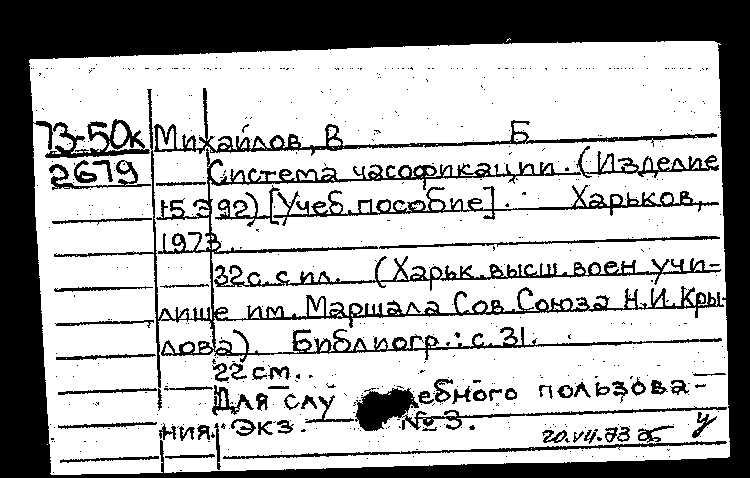 73-50к Михайлов, В Б
2679 Система часофикации. (Изделие
15Э92) [Учеб. пособие]. Харьков,
1973.
32с. с ил. (Харьк. высш. воен. учи-
лище им. Маршала Сов. Союза Н.И. Кры-
лова). Библиогр.: с. 31.
22 см.
Для слу ебного пользова-
ния. Экз. №3.
20.VII.73 у